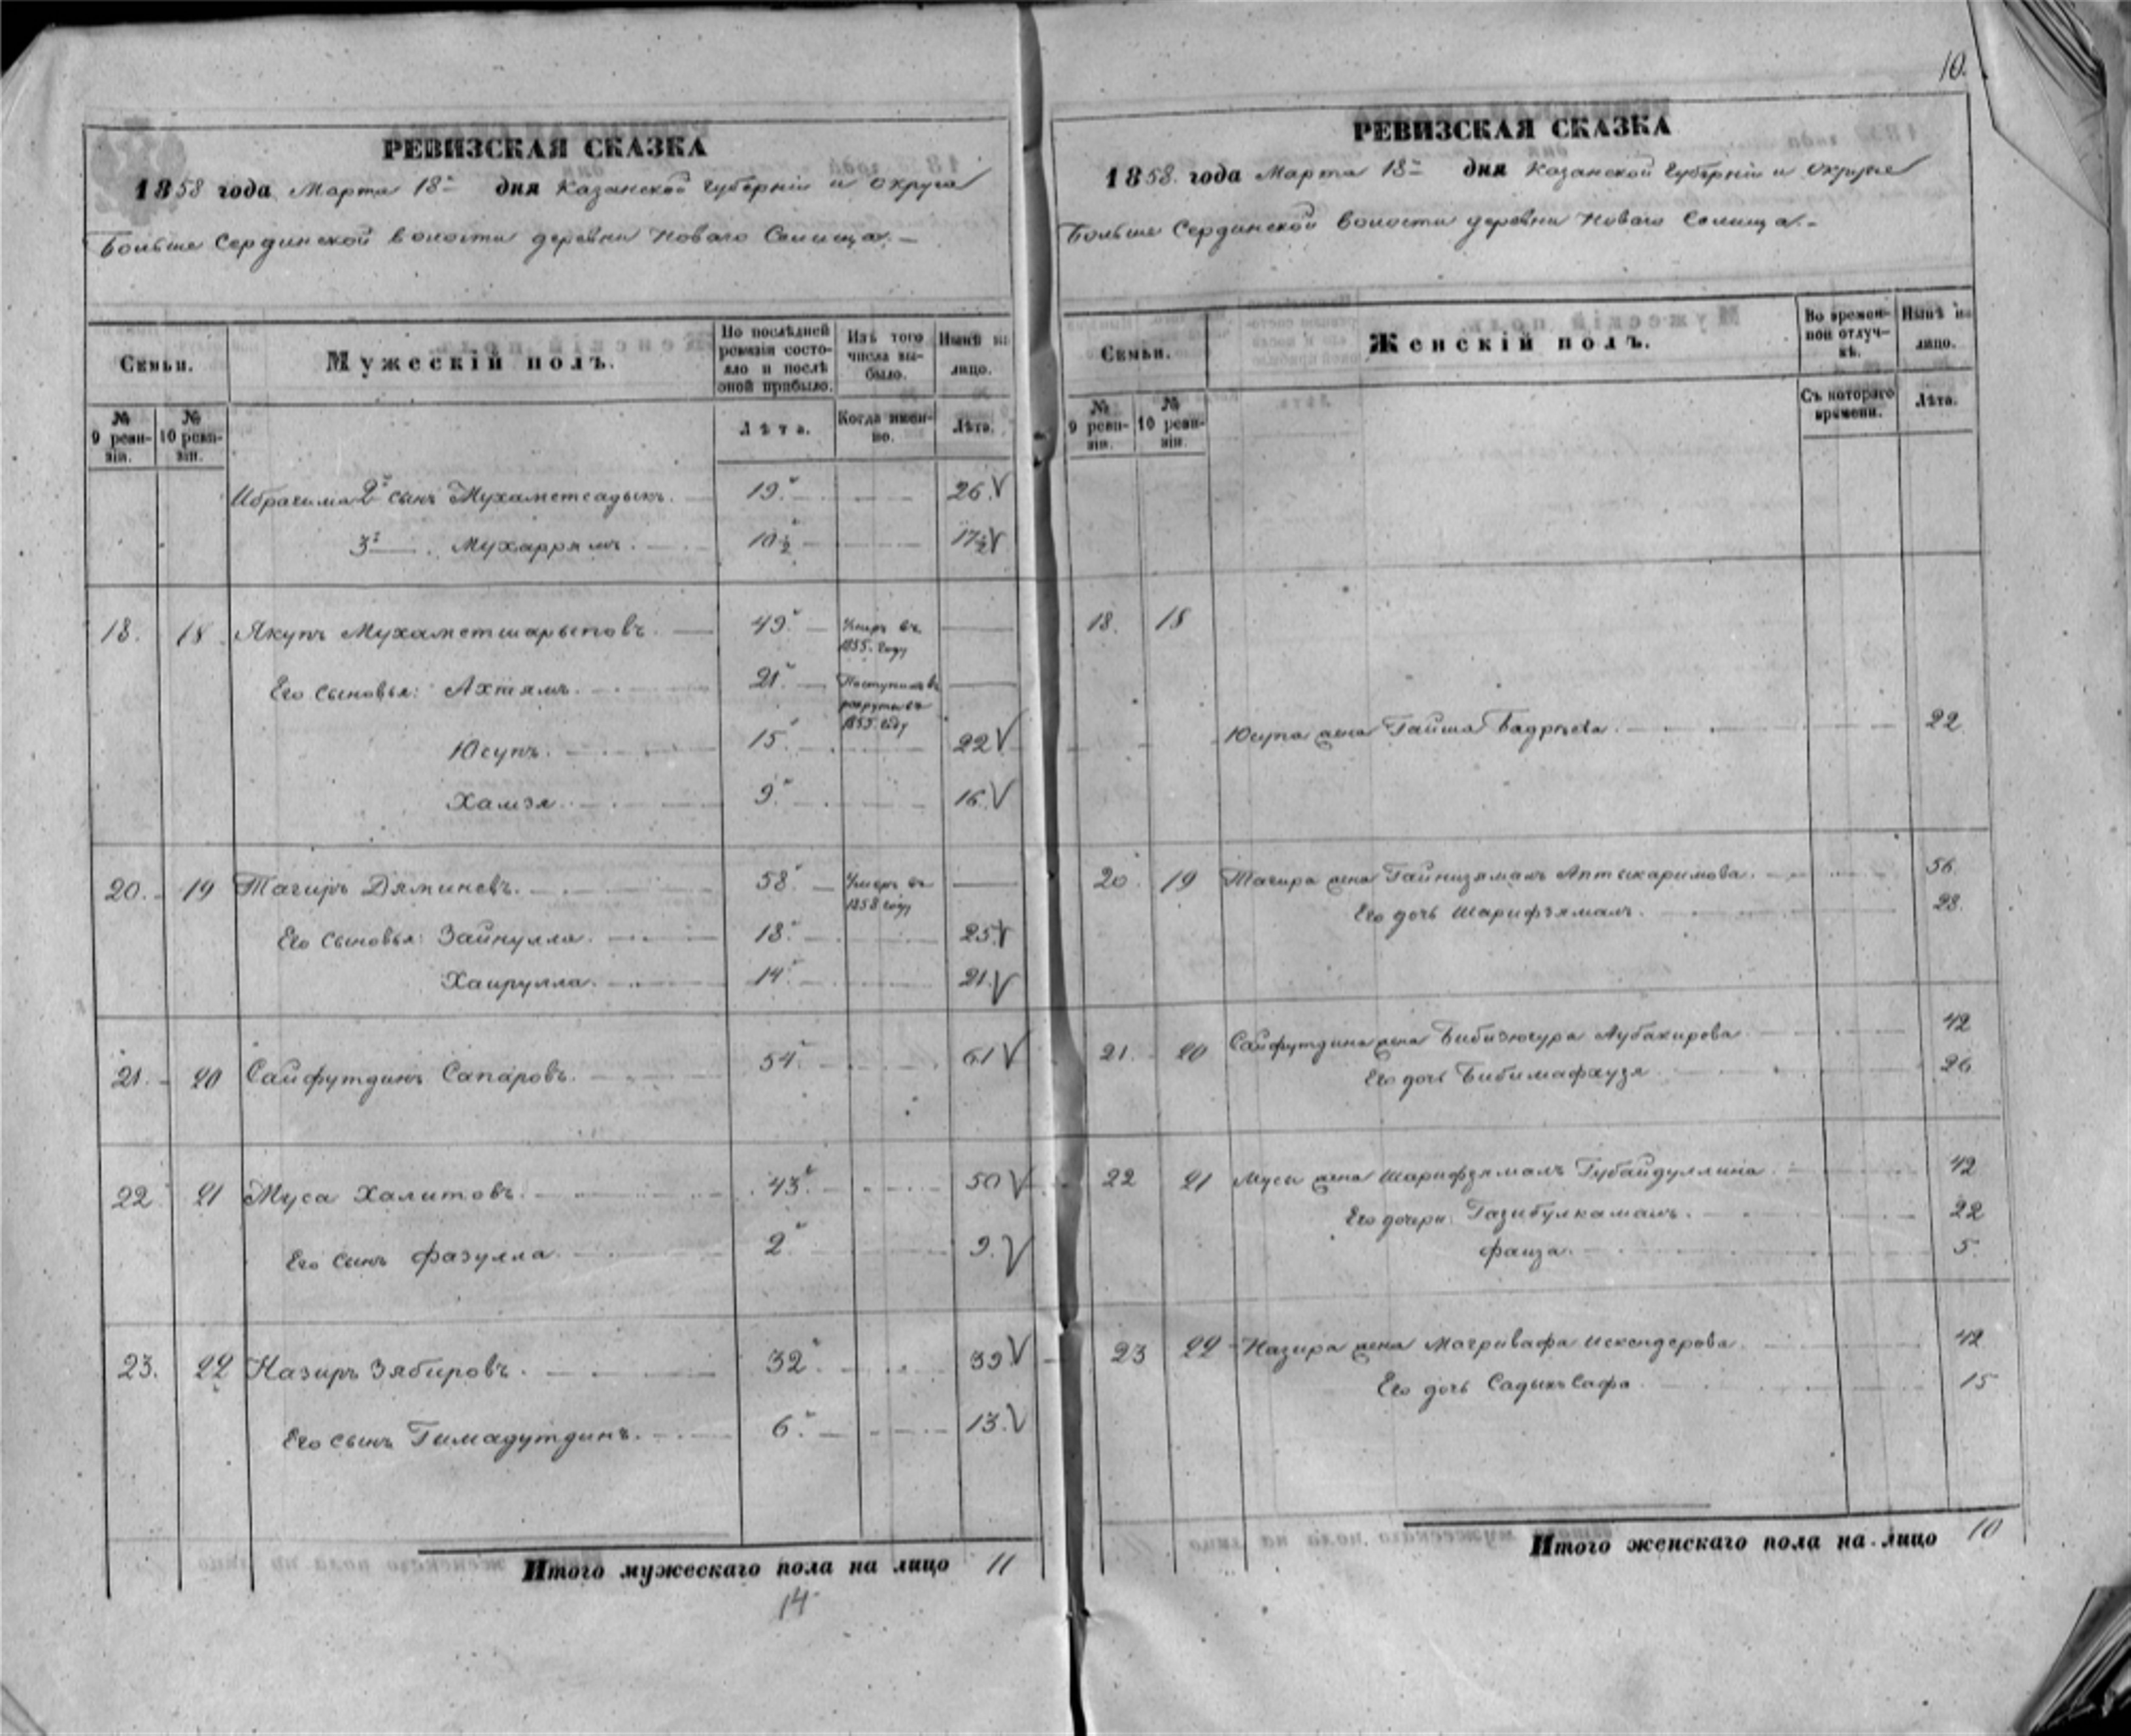 10.
РЕВИЗСКАЯ СКАЗКА
1858 года Марта 18го дня Казанской губерніи и округа
Больше Сердинской волости деревни Новаго Селища.
Семьи.
Мужескій полъ.
По послѣдней ревизіи состояло и послѣ оной прибыло.
Изъ того числа выбыло.
Нынѣ на лицо.
№ 9 ревизіи.
№ 10 ревизіи.
Лѣта.
Когда именно.
Лѣта.
Ибрагима 2й сынъ Мухаметсадыкъ. 19. 26. V
3й — Мухаррямъ. 10½ 17½ V
18. 18 Якупъ Мухаметшарыповъ. 49. Умеръ въ 1855. году
Его сыновья: Ахтямъ. 21. Поступилъ въ рекруты въ 1855. году
Юсупъ. 15. 22 V
Хамзя. 9. 16. V
20. 19 Тагиръ Дяминевъ. 58. Умеръ въ 1858 году
Его сыновья: Зайнулла. 18. 25. V
Хаирулла. 14. 21. V
21. 20 Сайфутдинъ Сапаровъ. 54. 61 V
22. 21 Муса Халитовъ. 43. 50 V
Его сынъ Фазулла. 2. 9. V
23. 22 Назиръ Зябировъ. 32. 39 V
Его сынъ Гимадутдинъ. 6. 13. V
Итого мужескаго пола на лицо 11
14
РЕВИЗСКАЯ СКАЗКА
1858. года Марта 18го дня Казанской губерніи и округа
Больше Сердинской волости деревни Новаго Селища.
Семьи.
Женскій полъ.
Во временной отлучкѣ.
Нынѣ на лицо.
№ 9 ревизіи.
№ 10 ревизіи.
Съ котораго времени.
Лѣта.
18. 18
Юсупа жена Гайша Бадрѣева. 22
20. 19 Тагира жена Гайнизямалъ Аптыкаримова. 56.
Его дочь Шарифзямалъ. 28.
21. 20 Сайфутдина жена Бибизюгура Аубакирова 42
Его дочь Бибимафхузя 26
22 21 Мусы жена Шарифзямалъ Губайдуллина 42
Его дочери: Газибулкамалъ. 22
Фаиза. 5.
23 22 Назира жена Магривафа Искендерова. 42
Его дочь Садыкъсафа. 15
Итого женскаго пола на лицо 10